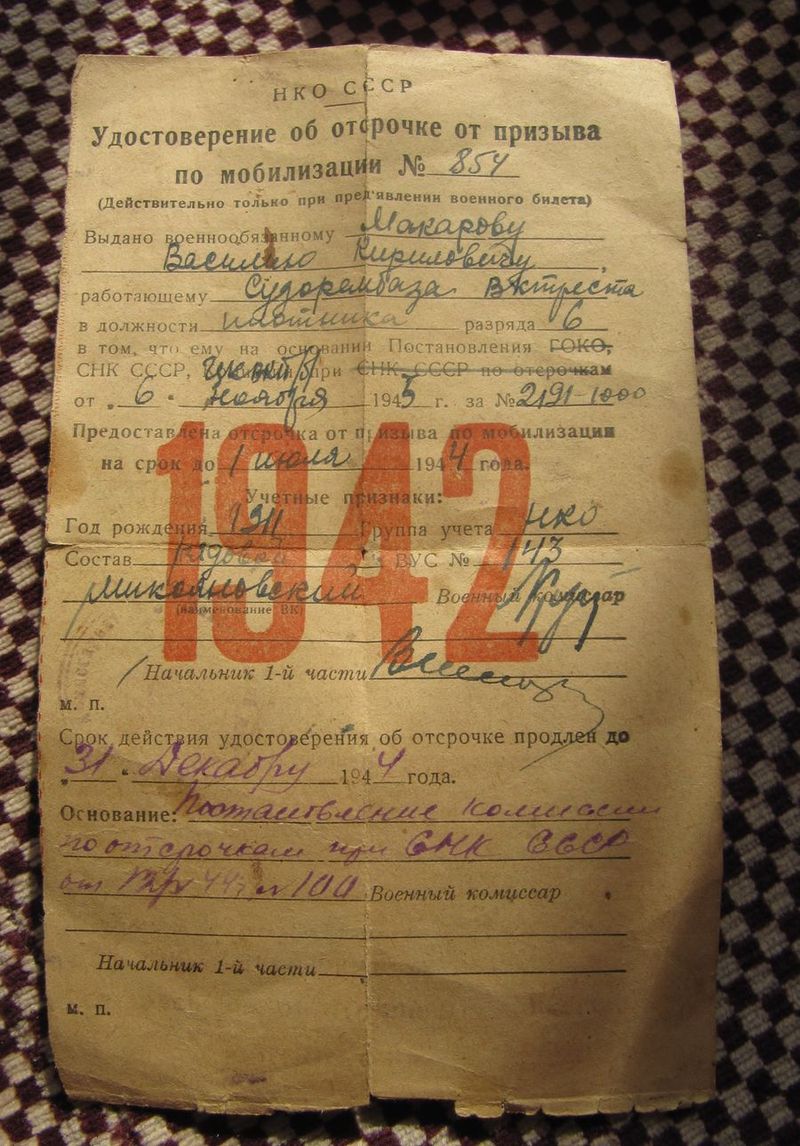 НКО СССР
Удостоверение об отсрочке от призыва
по мобилизации № 854
(Действительно только при пред'явлении военного билета)
Выдано военнообязанному Макарову
Василию Кириловичу
работающему Судорембаза Вктреста
в должности плотника разряда 6
в том, что ему на основании Постановления ГОКО,
СНК СССР, при СНК СССР по отсрочкам
от „6" ноября 1943 г. за № 2191-1000
Предоставлена отсрочка от призыва по мобилизации
на срок до 1 июля 1944 года.
1942
Учетные признаки:
Год рождения 1911 Группа учета НКО
Состав рядовой ВУС № 143
Микояновский Военный комиссар
(наименование ВК)
Начальник 1-й части
м. п.
Срок действия удостоверения об отсрочке продлен до
„31" Декабру 1944 года.
Основание: Постановление комиссии
по отсрочкам при СНК СССР
№ 100 Военный комиссар
Начальник 1-й части
м. п.